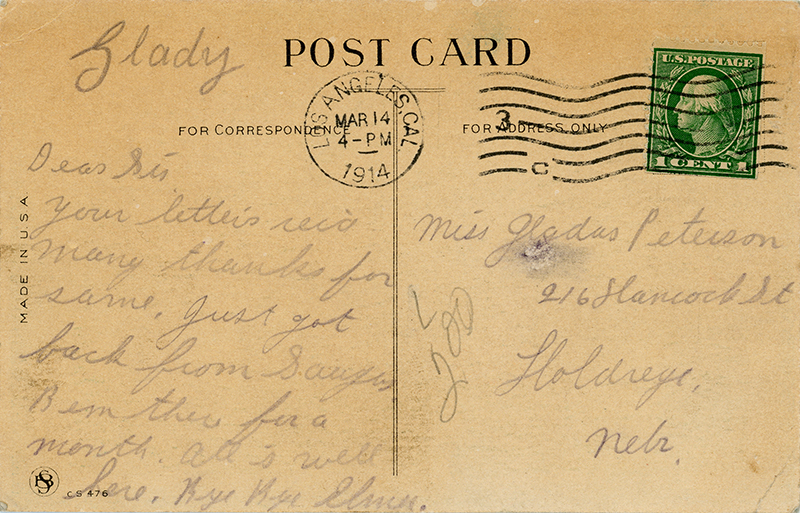 Glady
POST CARD
LOS ANGELES, CAL.
MAR 14
4-PM
1914
3
C
U.S. POSTAGE
1 CENT 1
FOR CORRESPONDENCE
FOR ADDRESS ONLY
Dear Sis
Your letter's rec'd
many thanks for
same. Just got
back from Saugus
Been there for a
month. All is well
here. Bye Bye Elmer.
Miss Gladys Peterson
216 Hancock St
Holdrege,
Nebr.
MADE IN U.S.A.
CS 476